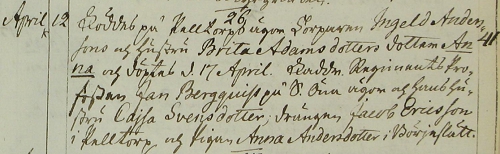 April 12 Föddes på Pelltorps ägor Torparen Ingeld Anders-
26
sons och hustru Brita Adamsdotters dotter An- 11
na och döptes d. 17 April. Faddr. Regiments Pro-
fossen Jan Bergquist på ägor och hans hu-
stru Cajsa Svensdotter, drängen Jacob Ericsson
i Pelltorp och pigan Anna Andersdotter i Börjeslätt.